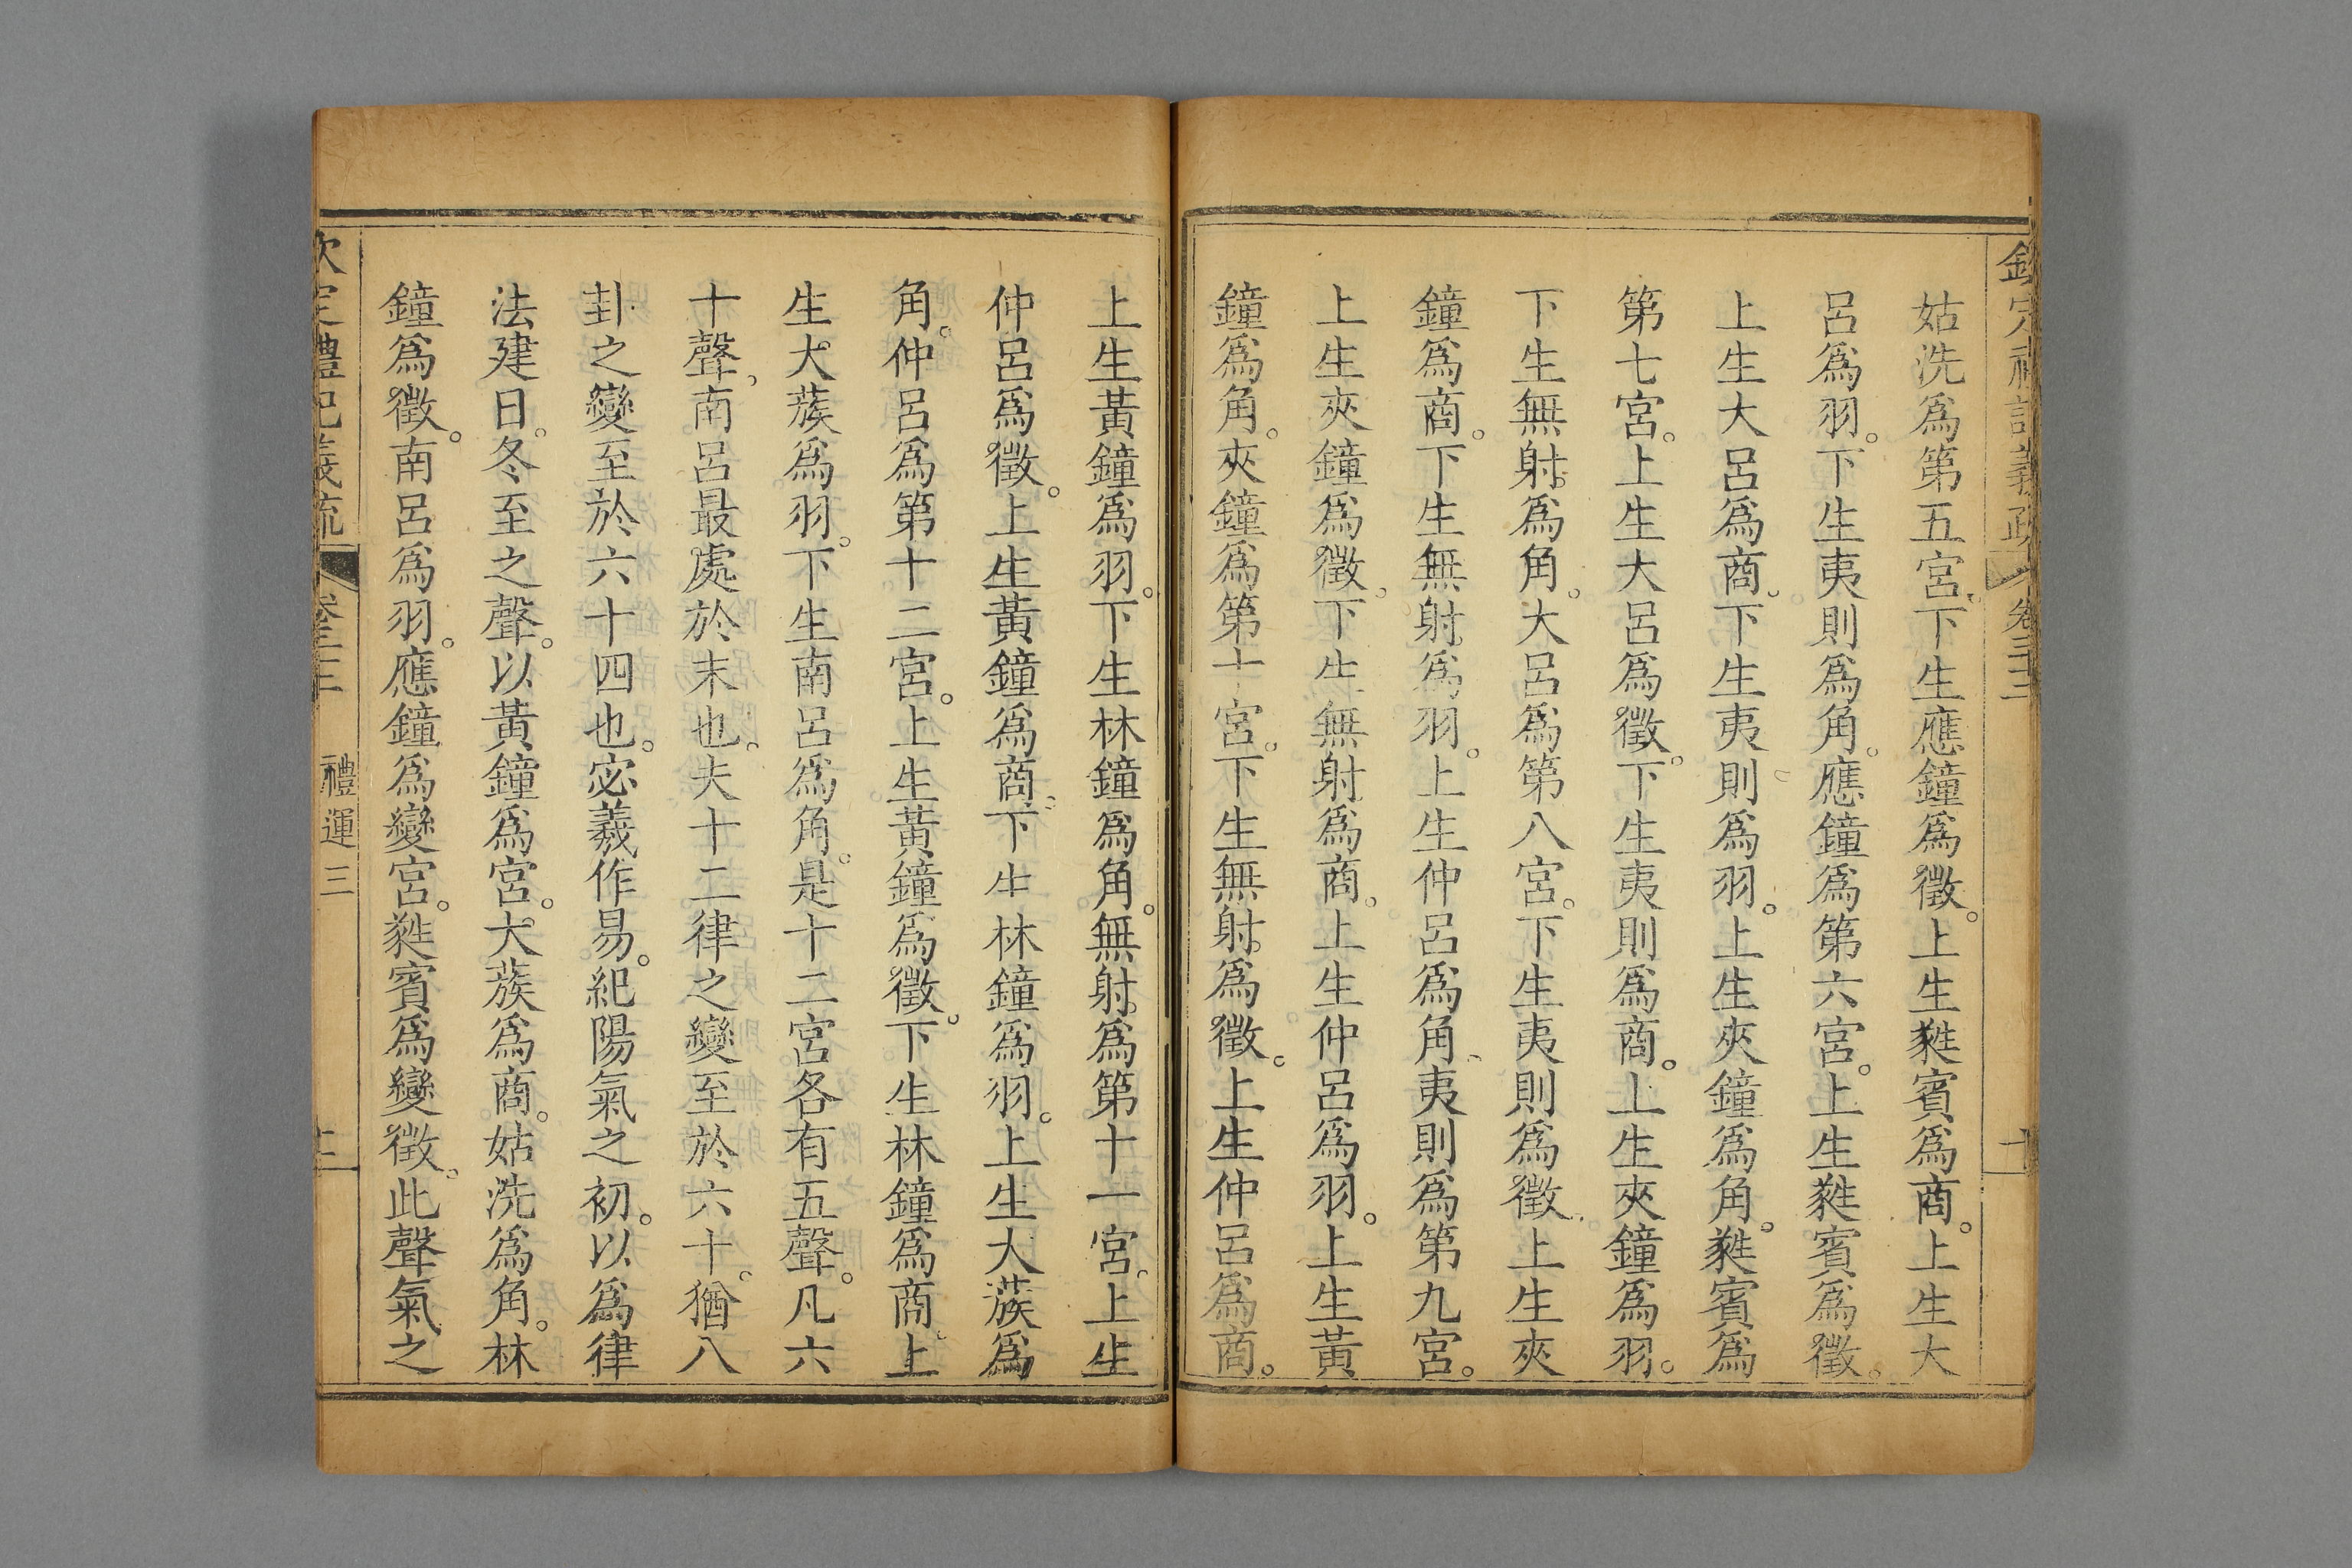 欽定禮記義疏 卷三十三 十
姑洗爲第五宮。下生應鐘爲徵。上生蕤賓爲商。上生大
呂爲羽。下生夷則爲角。應鐘爲第六宮。上生蕤賓爲徵。
上生大呂爲商。下生夷則爲羽。上生夾鐘爲角。蕤賓爲
第七宮。上生大呂爲徵。下生夷則爲商。上生夾鐘爲羽。
下生無射爲角。大呂爲第八宮。下生夷則爲徵。上生夾
鐘爲商。下生無射爲羽。上生仲呂爲角。夷則爲第九宮。
上生夾鐘爲徵。下生無射爲商。上生仲呂爲羽。上生黃
鐘爲角。夾鐘爲第十宮。下生無射爲徵。上生仲呂爲商。
上生黃鐘爲羽。下生林鐘爲角。無射爲第十一宮。上生
仲呂爲徵。上生黃鐘爲商。下生林鐘爲羽。上生大蔟爲
角。仲呂爲第十二宮。上生黃鐘爲徵。下生林鐘爲商。上
生大蔟爲羽。下生南呂爲角。是十二宮各有五聲。凡六
十聲。南呂最處於末也。夫十二律之變至於六十。猶八
卦之變至於六十四也。宓羲作易。紀陽氣之初。以爲律
法建日。冬至之聲。以黃鐘爲宮。大蔟爲商。姑洗爲角。林
鐘爲徵。南呂爲羽。應鐘爲變宮。蕤賓爲變徵。此聲氣之
欽定禮記義疏 卷三十三 禮運三